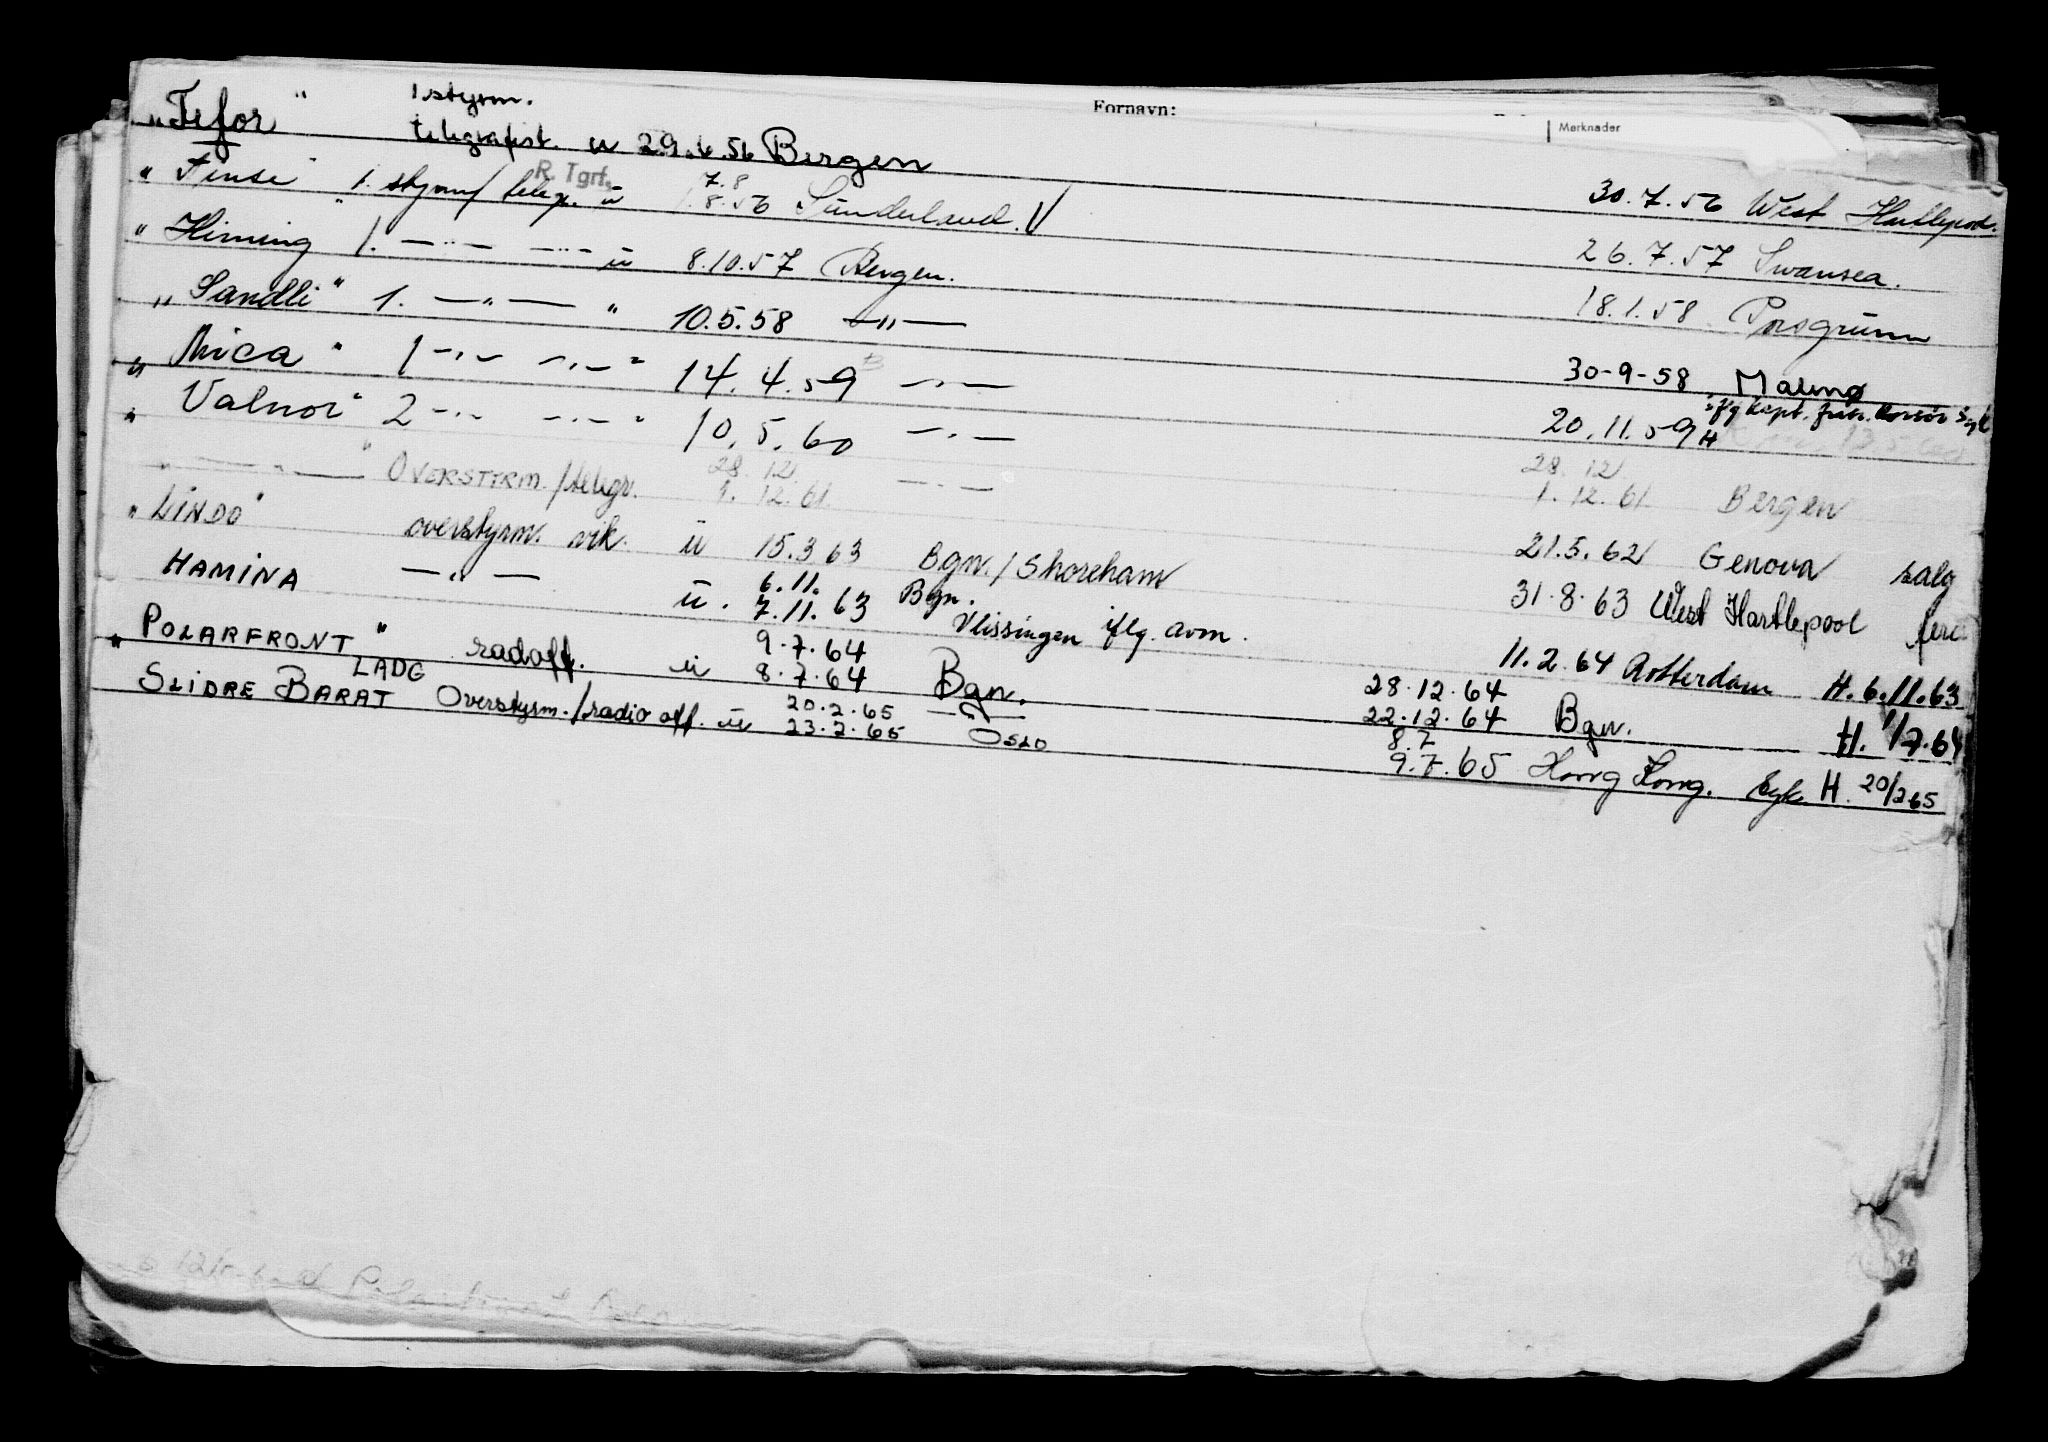 Fornavn:
Merknader
"Tefor" 1 styrm. telegrafist. u 29.6.56 Bergen 30.7.56 West Hartlepool.
R. Tgrf.
"Finse" 1. styrm/ telegr. ü 7.8 1.8.56 Sunderland. 26.7.57 Swansea.
"Hirming 1. —"— —"— ü 8.10.57 Bergen. 18.1.58 Porsgrunn
"Sandli" 1. —"— " 10.5.58 —"— 30-9-58 Malmø
"Mica" 1 —"— —"— " 14.4.59 —"— 20.11.59 H
"Valnor" 2 —"— —"— " 10.5.60 —"—
—"— " OVERSTYRM./telegr. 28.12. 1.12.61. —"— 28.12. 1.12.61. Bergen
"LINDO" overstyrm. vik. ü 15.3 63 Bgn./Shoreham 21.5.62 Genova salg
HAMINA —"— ü. 6.11. 7.11.63 Bgn. Vlissingen iflg. avm. 31.8.63 West Hartlepool
"POLARFRONT" radoff. ü 9.7.64 8.7.64 Bgn. 11.2.64 Rotterdam H. 6.11.63
LADG
SLIDRE BARAT Overstyrm./radio off. ü 20.2.65 23.2.65 —"— OSLO 28.12.64 22.12.64 Bgn. H. 1/7.64
8.7 9.7.65 Hong Kong. Syk H. 20/2 65